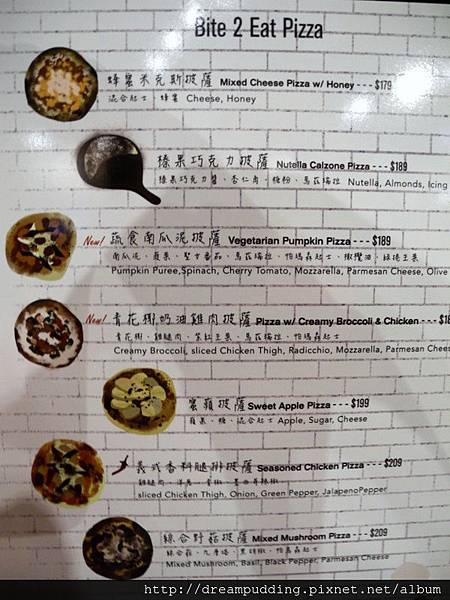 Bite 2 Eat Pizza
蜂蜜米克斯披薩 Mixed Cheese Pizza w/ Honey - - - $179
混合起士、蜂蜜 Cheese, Honey
榛果巧克力披薩 Nutella Calzone Pizza - - - $189
榛果巧克力醬、杏仁角、糖粉、馬茲瑞拉 Nutella, Almonds, Icing
New! 蔬食南瓜泥披薩 Vegetarian Pumpkin Pizza - - - $189
南瓜泥、蘋果、聖女番茄、馬茲瑞拉、帕瑪森起士、橄欖油、綠捲生菜
Pumpkin Puree,Spinach, Cherry Tomato, Mozzarella, Parmesan Cheese, Olive
New! 青花椰奶油雞肉披薩 Pizza w/ Creamy Broccoli & Chicken - - - $18
青花椰、雞腿肉、紫紅生菜、馬茲瑞拉、帕瑪森起士
Creamy Broccoli, sliced Chicken Thigh, Radicchio, Mozzarella, Parmesan Chees
蜜蘋披薩 Sweet Apple Pizza - - - $199
蘋果、糖、混合起士 Apple, Sugar, Cheese
義式香料腿排披薩 Seasoned Chicken Pizza - - - $209
雞腿肉、洋蔥、青椒
sliced Chicken Thigh, Onion, Green Pepper, JalapenoPepper
綜合野菇披薩 Mixed Mushroom Pizza - - - $209
綜合菇、九層塔、黑胡椒、帕瑪森起士
Mixed Mushroom, Basil, Black Pepper, Parmesan Cheese
http://dreampudding.pixnet.net/album